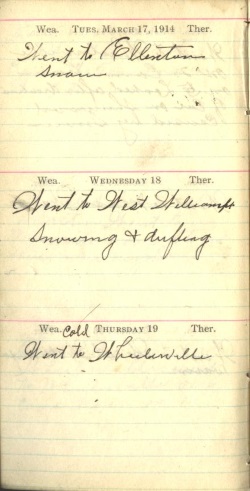 Wea. TUES. MARCH 17, 1914 Ther.
Went to Ellenton
Snow
Wea. WEDNESDAY 18 Ther.
Went to West Williamspt
Snowing & drifting
Wea. Cold THURSDAY 19 Ther.
Went to Wheelerville